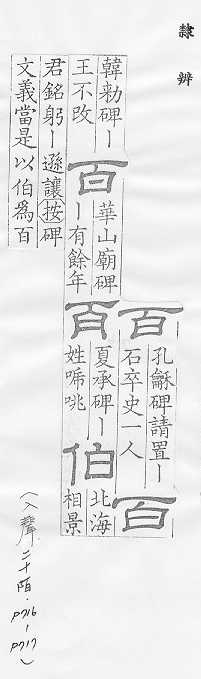 隸辨
百
孔龢碑請置｜
石卒史一人
百
韓勑碑｜
王不改
百
華山廟碑
｜有餘年
百
夏承碑｜
姓唏咷
伯
北海
相景
君銘躬｜遜讓按碑
文義當是以伯爲百
（入聲二十陌．P716-P717）